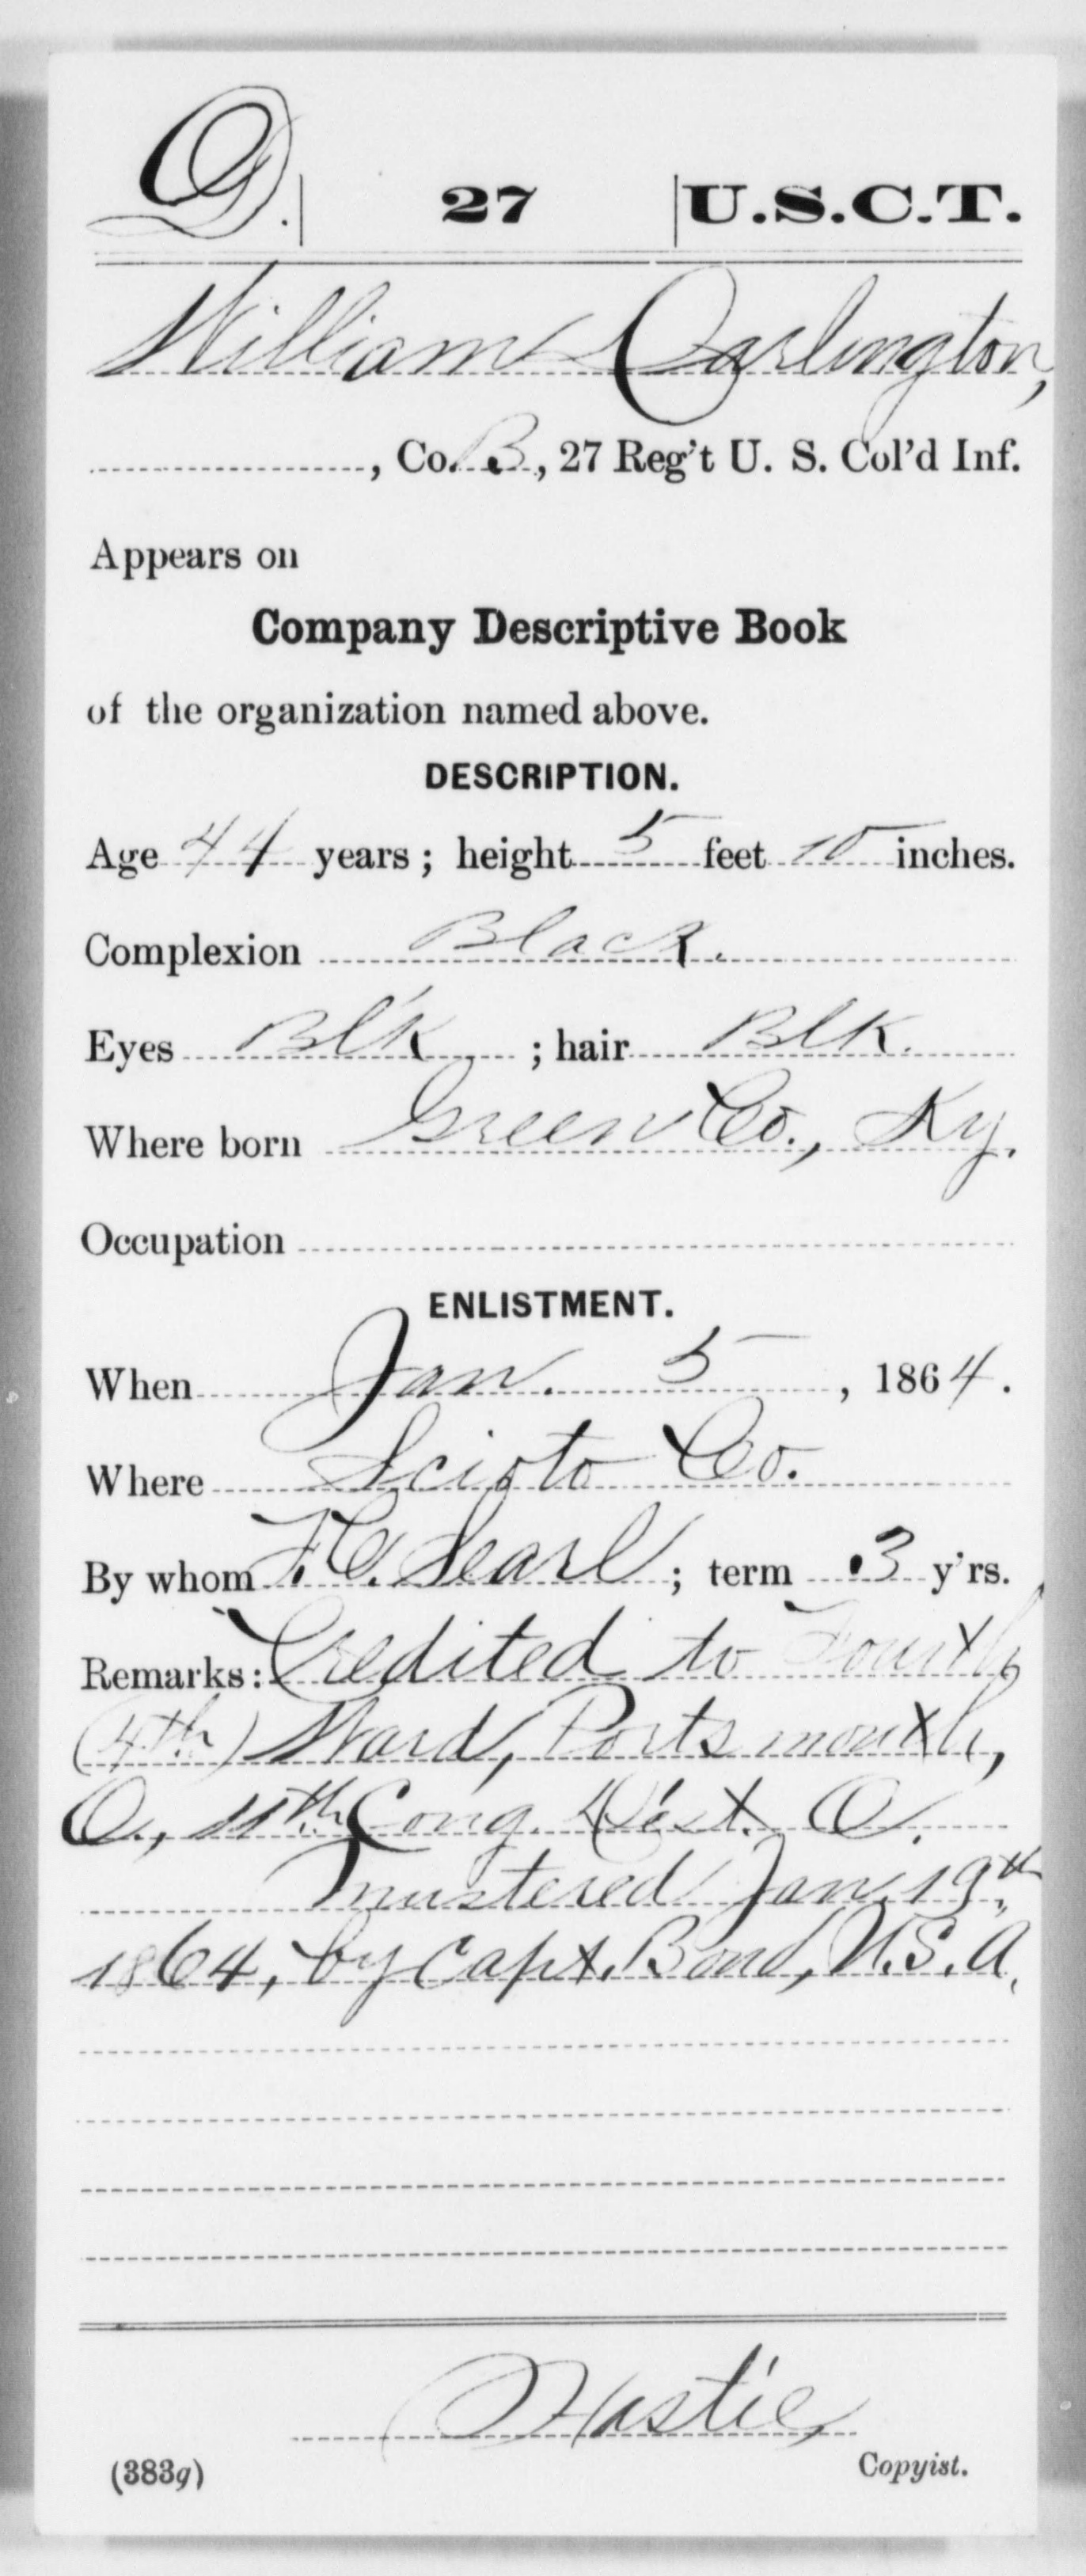 D. | 27 | U.S.C.T.
William Darlington,
, Co. B, 27 Reg't U. S. Col'd Inf.
Appears on
Company Descriptive Book
of the organization named above.
DESCRIPTION.
Age 44 years; height 5 feet 10 inches.
Complexion Black.
Eyes Bl'k ; hair Blk.
Where born Green Co., Ky.
Occupation
ENLISTMENT.
When Jan. 5, 1864.
Where Scioto Co.
By whom F. C. Searl; term 3 y'rs.
Remarks: Credited to Fourth
(4th) Ward, Portsmouth,
O., 11th Cong. Dist. O.
Mustered Jan. 19th
1864, by Capt. Bond, U.S.A.
Hastie
(383g) Copyist.